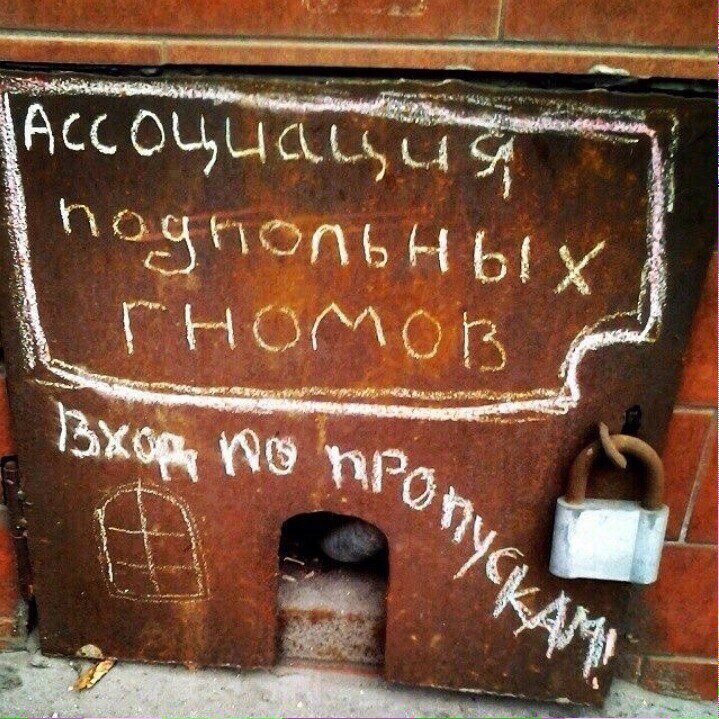 Ассоциация
подпольных
гномов
Вход по пропускам!